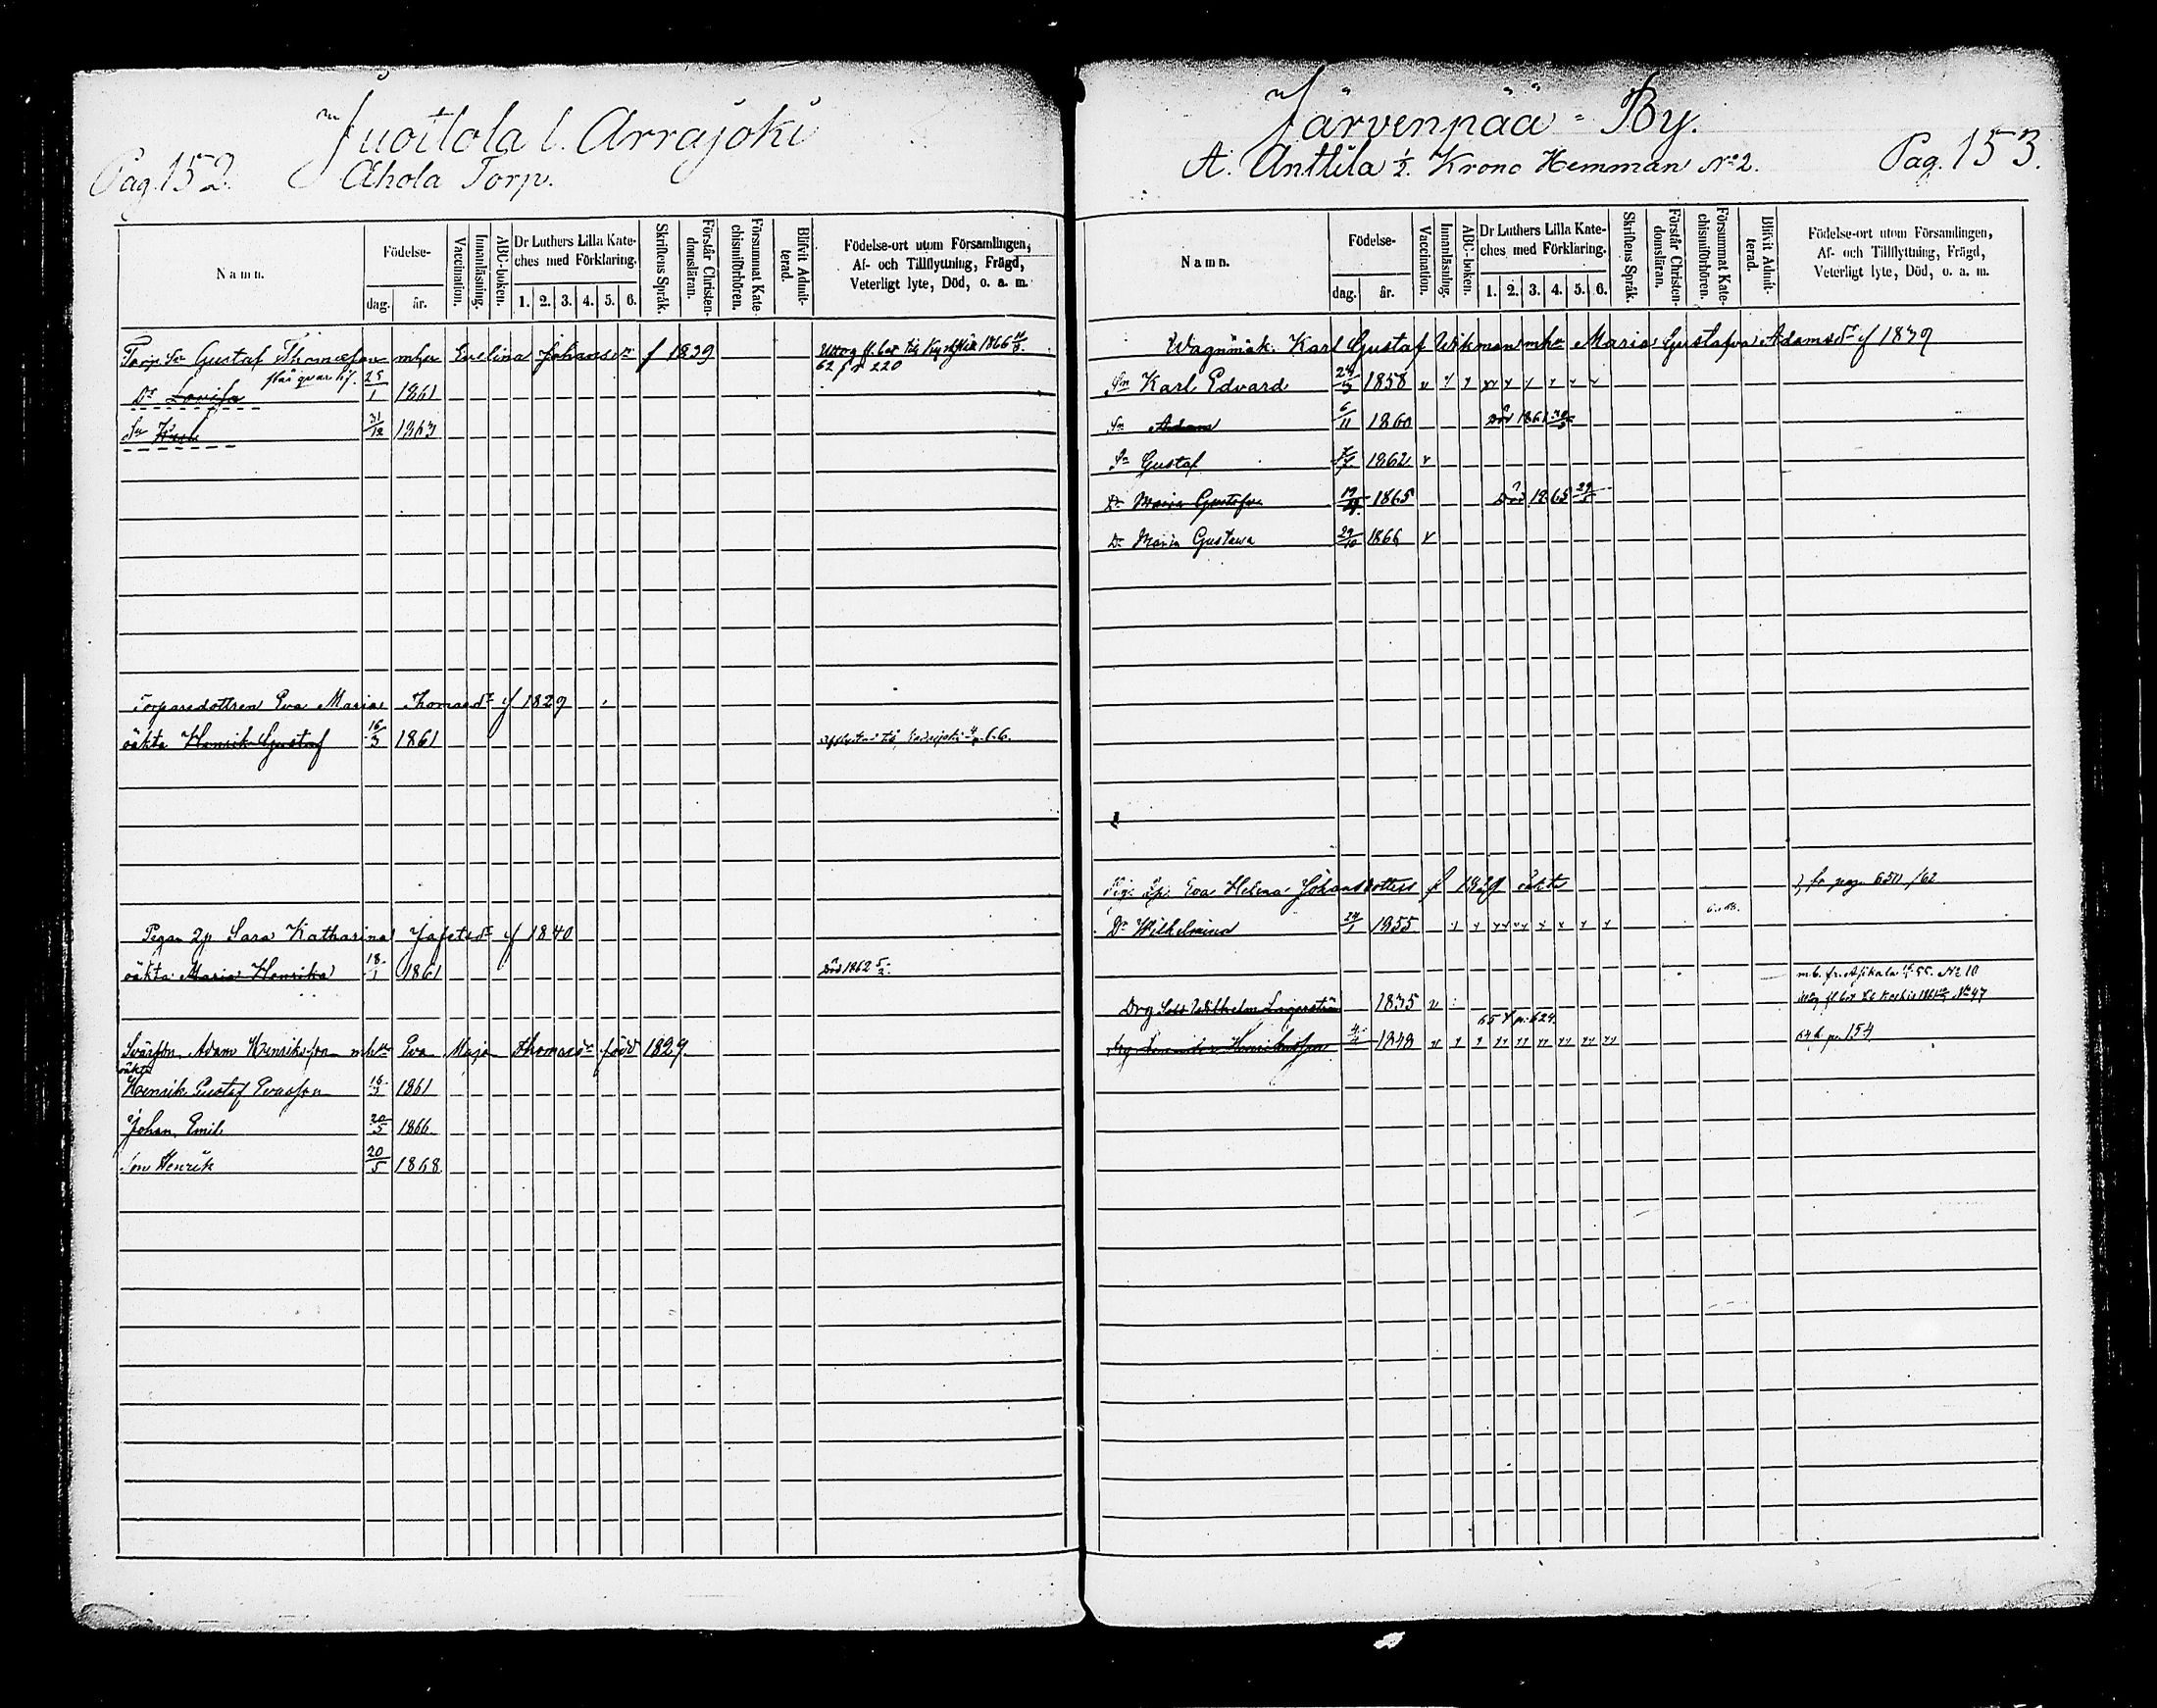 Juoitola l. Arrajoki
Pag. 152. Ahola Torp.
Namn. Födelse- dag. år. Vaccination. Innanläsning. ABC-boken. Dr Luthers Lilla Kateches med Förklaring. 1. 2. 3. 4. 5. 6. Skriftens Språk. Förstår Christendomsläran. Försummat Katechismiförhören. Blifvit Admitterad. Födelse-ort utom Församlingen, Af- och Tillflyttning, Frägd, Veterligt lyte, Död, o. a. m.
Torp. Sn Gustaf Thomasson mhu Evelina Johansdr f 1839 1866
62 220
Dr Lovisa 25/1 1861
Sn Karl 31/12 1863
Torparedottren Eva Maria Thomasdr f 1829
oäkta Henrik Gustaf 16/3 1861 66.
Pigan 2p Sara Katharina Jafetsdr f 1840
oäkta Maria Henrika 18/1 1861 Död 1862 5/2.
Svärson Adam Henriksson mhu Eva Maja Thomasdr född 1829
oäkta
Henrik Gustaf Evasson 16/3 1861
Johan Emil 20/5 1866
Son Henrik 20/5 1868
Järvenpää By.
A. Anttila 1/2. Krono Hemman No 2. Pag. 153.
Namn. Födelse- dag. år. Vaccination. Innanläsning. ABC-boken. Dr Luthers Lilla Kateches med Förklaring. 1. 2. 3. 4. 5. 6. Skriftens Språk. Förstår Christendomsläran. Försummat Katechismiförhören. Blifvit Admitterad. Födelse-ort utom Församlingen, Af- och Tillflyttning, Frägd, Veterligt lyte, Död, o. a. m.
Wagnmak. Karl Gustaf Wikman mhu Maria Gustafva Adamsdr f 1839
Sn Karl Edvard 1858
Sn Adam 6/11 1860 Död 1861
Sn Gustaf 1862
Dr Maria Gustafva 1865 Död 1865
Dr Maria Gustava 29/10 1866
Eva Helena Johansdotter f oäkta fr pag. 650/62
Dr Wilhelmina 24/1 1855
No 10
Drg Wilhelm Lagerström 1835 No 47
65 p. 624.
Henriksson 1848 154